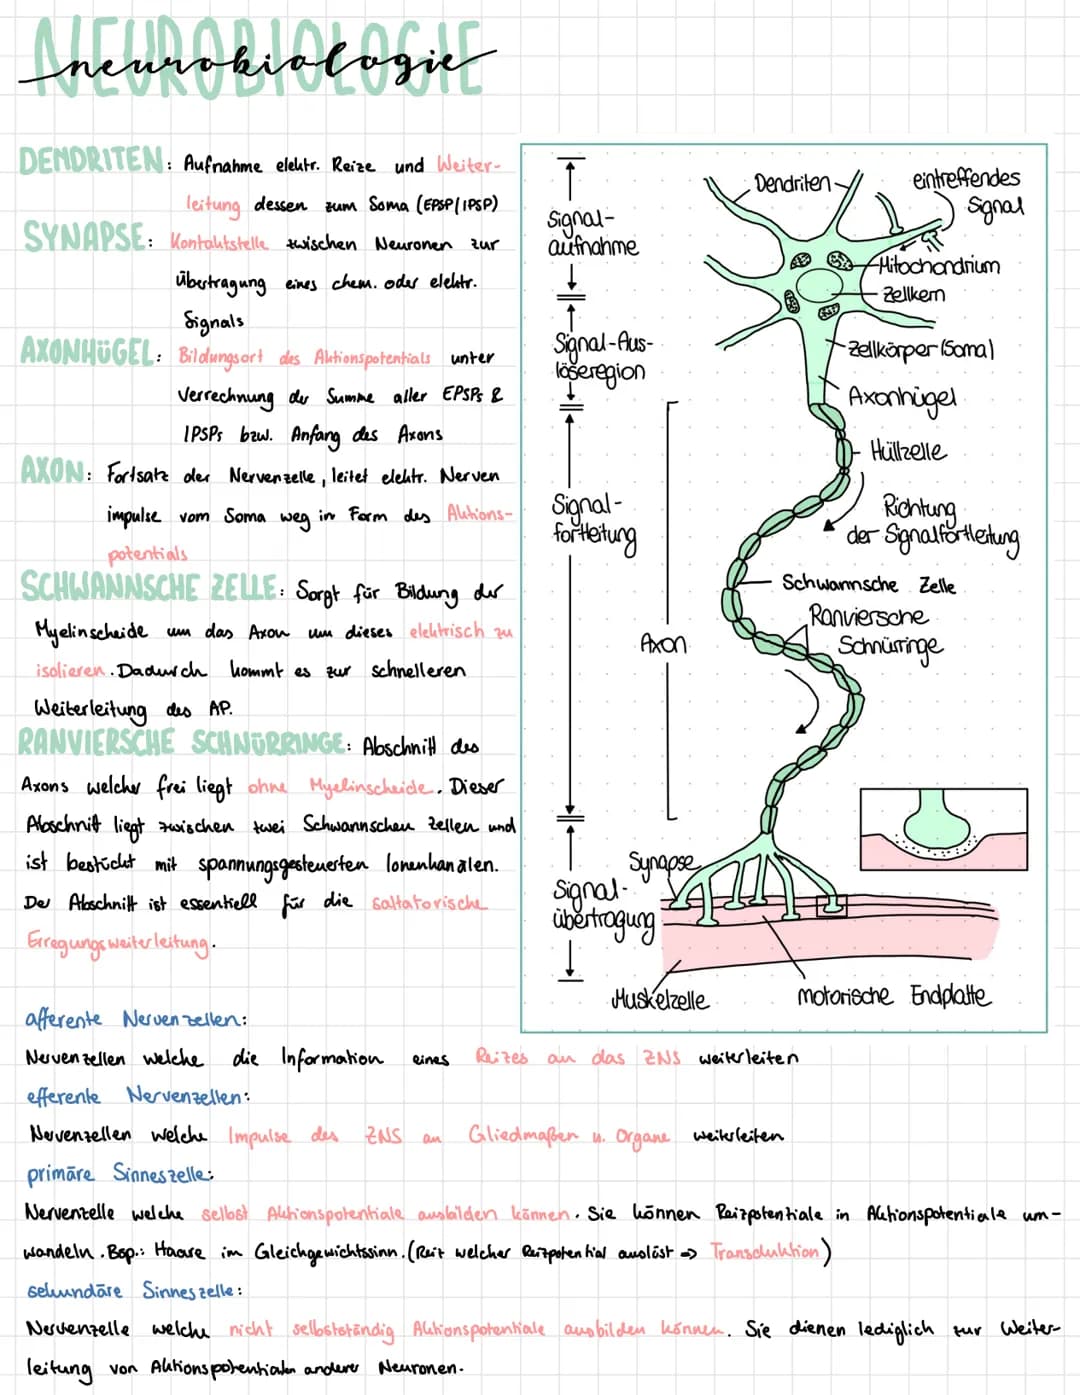 NEUROBIOLOGIE
neurobiologie
DENDRITEN: Aufnahme elektr. Reize und Weiter-
leitung dessen zum Soma (EPSP/IPSP)
SYNAPSE: Kontaktstelle zwischen Neuronen zur
Übertragung eines chem. oder elektr.
Signals
AXONHÜGEL: Bildungsort des Aktionspotentials unter
Verrechnung der Summe aller EPSPs &
IPSPs bzw. Anfang des Axons
AXON: Fortsatz der Nervenzelle, leitet elektr. Nerven
impulse vom Soma weg in Form des Aktions-
potentials
SCHWANNSCHE ZELLE: Sorgt für Bildung der
Myelinscheide um das Axon um dieses elektrisch zu
isolieren. Dadurch kommt es zur schnelleren
Weiterleitung des AP.
RANVIERSCHE SCHNÜRRINGE: Abschnitt des
Axons welcher frei liegt ohne Myelinscheide. Dieser
Abschnitt liegt zwischen zwei Schwannschen Zellen und
ist bestückt mit spannungsgesteuerten Ionenkanälen.
Der Abschnitt ist essentiell für die saltatorische
Erregungsweiterleitung.
Signal-
aufnahme
Signal-Aus-
löseregion
Signal-
fortleitung
Signal-
übertragung
Dendriten
eintreffendes
Signal
Mitochondrium
Zellkern
Zellkörper (Soma)
Axonhügel
Hüllzelle
Richtung
der Signalfortleitung
Schwannsche Zelle
Ranviersche
Schnürringe
Axon
Synapse
Muskelzelle
motorische Endplatte
afferente Nervenzellen:
Nervenzellen welche die Information eines Reizes an das ZNS weiterleiten
efferente Nervenzellen:
Nervenzellen welche Impulse des ZNS an Gliedmaßen u. Organe weiterleiten
primäre Sinneszelle:
Nervenzelle welche selbst Aktionspotentiale ausbilden können. Sie können Reizpotentiale in Aktionspotentiale um-
wandeln. Bsp.: Haare im Gleichgewichtssinn. (Reiz welcher Reizpotential auslöst => Transduktion)
sekundäre Sinneszelle:
Nervenzelle welche nicht selbstständig Aktionspotentiale ausbilden können. Sie dienen lediglich zur Weiter-
leitung von Aktionspotentialen anderer Neuronen.